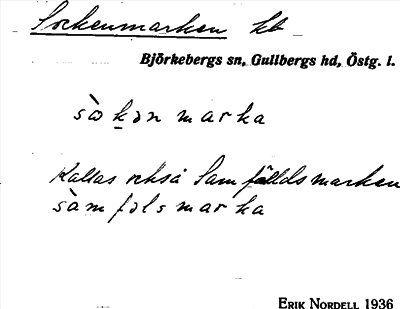 Sockenmarken kb
Björkebergs sn, Gullbergs hd, Östg. l.
sò̀kən marka
Kallas också Samfälldsmarken
sàmfəlsmarka
ERIK NORDELL 1936